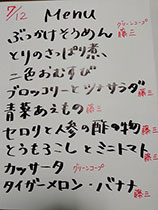 7/12 Menu
グリーンコープ
ぶっかけそうめん 藤三
とりのさっぱり煮
二色おむすび
ブロッコリーとツナサラダ 藤三
青菜あえもの 藤三
セロリと人参の酢の物 藤三
とうもろこしとミニトマト 藤三
カッサータ グリーンコープ
タイガーメロン・バナナ 藤三